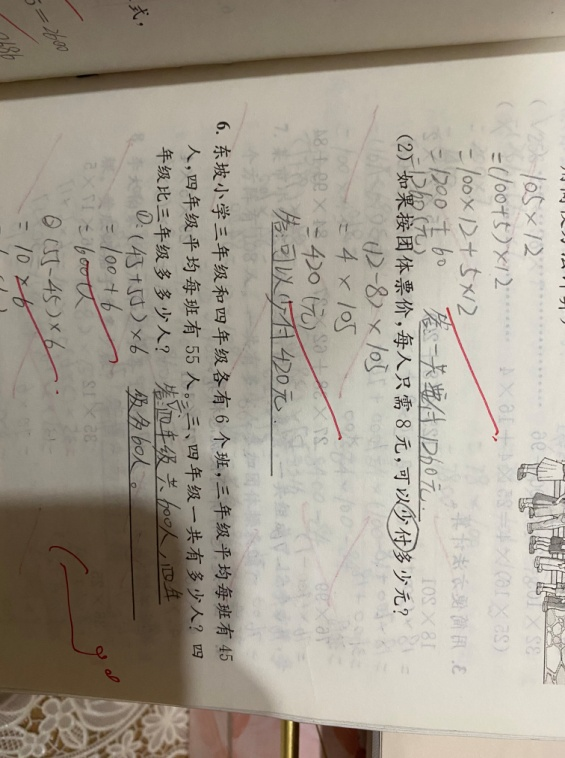 式,
=2600
105×12
=(100+5)×12
=100×12+5×12
=1200+60
=1260(元)
答:一共要付1260元.
(2)如果按团体票价,每人只需8元,可以少付多少元?
(12-8)×105
=4×105
=420(元)
答:可以少付420元.
6. 东坡小学三年级和四年级各有6个班,三年级平均每班有45
人,四年级平均每班有55人。三、四年级一共有多少人?四
年级比三年级多多少人?
①:(45+55)×6
=100×6
=600(人)
②(55-45)×6
=10×6
答:三四年级共600人,四年
级多60人。